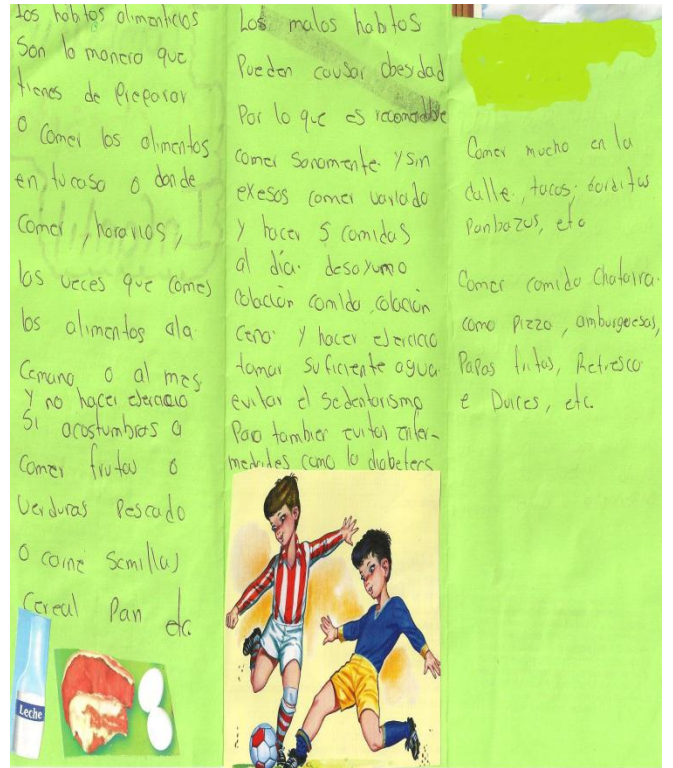 Los habitos alimenticios
Son la manera que
tienes de Preparar
o comer los alimentos
en tu casa o donde
comer, horarios,
las veces que comes
los alimentos ala
Cemana o al mes
Y no hacer ejercicio
Si acostumbras a
Comer frutas o
Verduras Pescado
o carne Semillas
Cereal Pan etc.
Leche
Los malos habitos
Pueden causar obesidad
Por lo que es recomendable
comer sanamente. Y sin
exesos comer variado
y hacer 5 comidas
al día. desayuno
colación comida, colación
cena. Y hacer ejercicio
tomar suficiente agua
evitar el Sedentarismo
Para tambien evitar enfer-
medades como la diabeters
Comer mucho en la
calle, tacos, gorditas
Panbazos, etc
Comer comida Chatarra.
como Pizza, amburguesas,
Papas fritas, Refresco
e Dulces, etc.